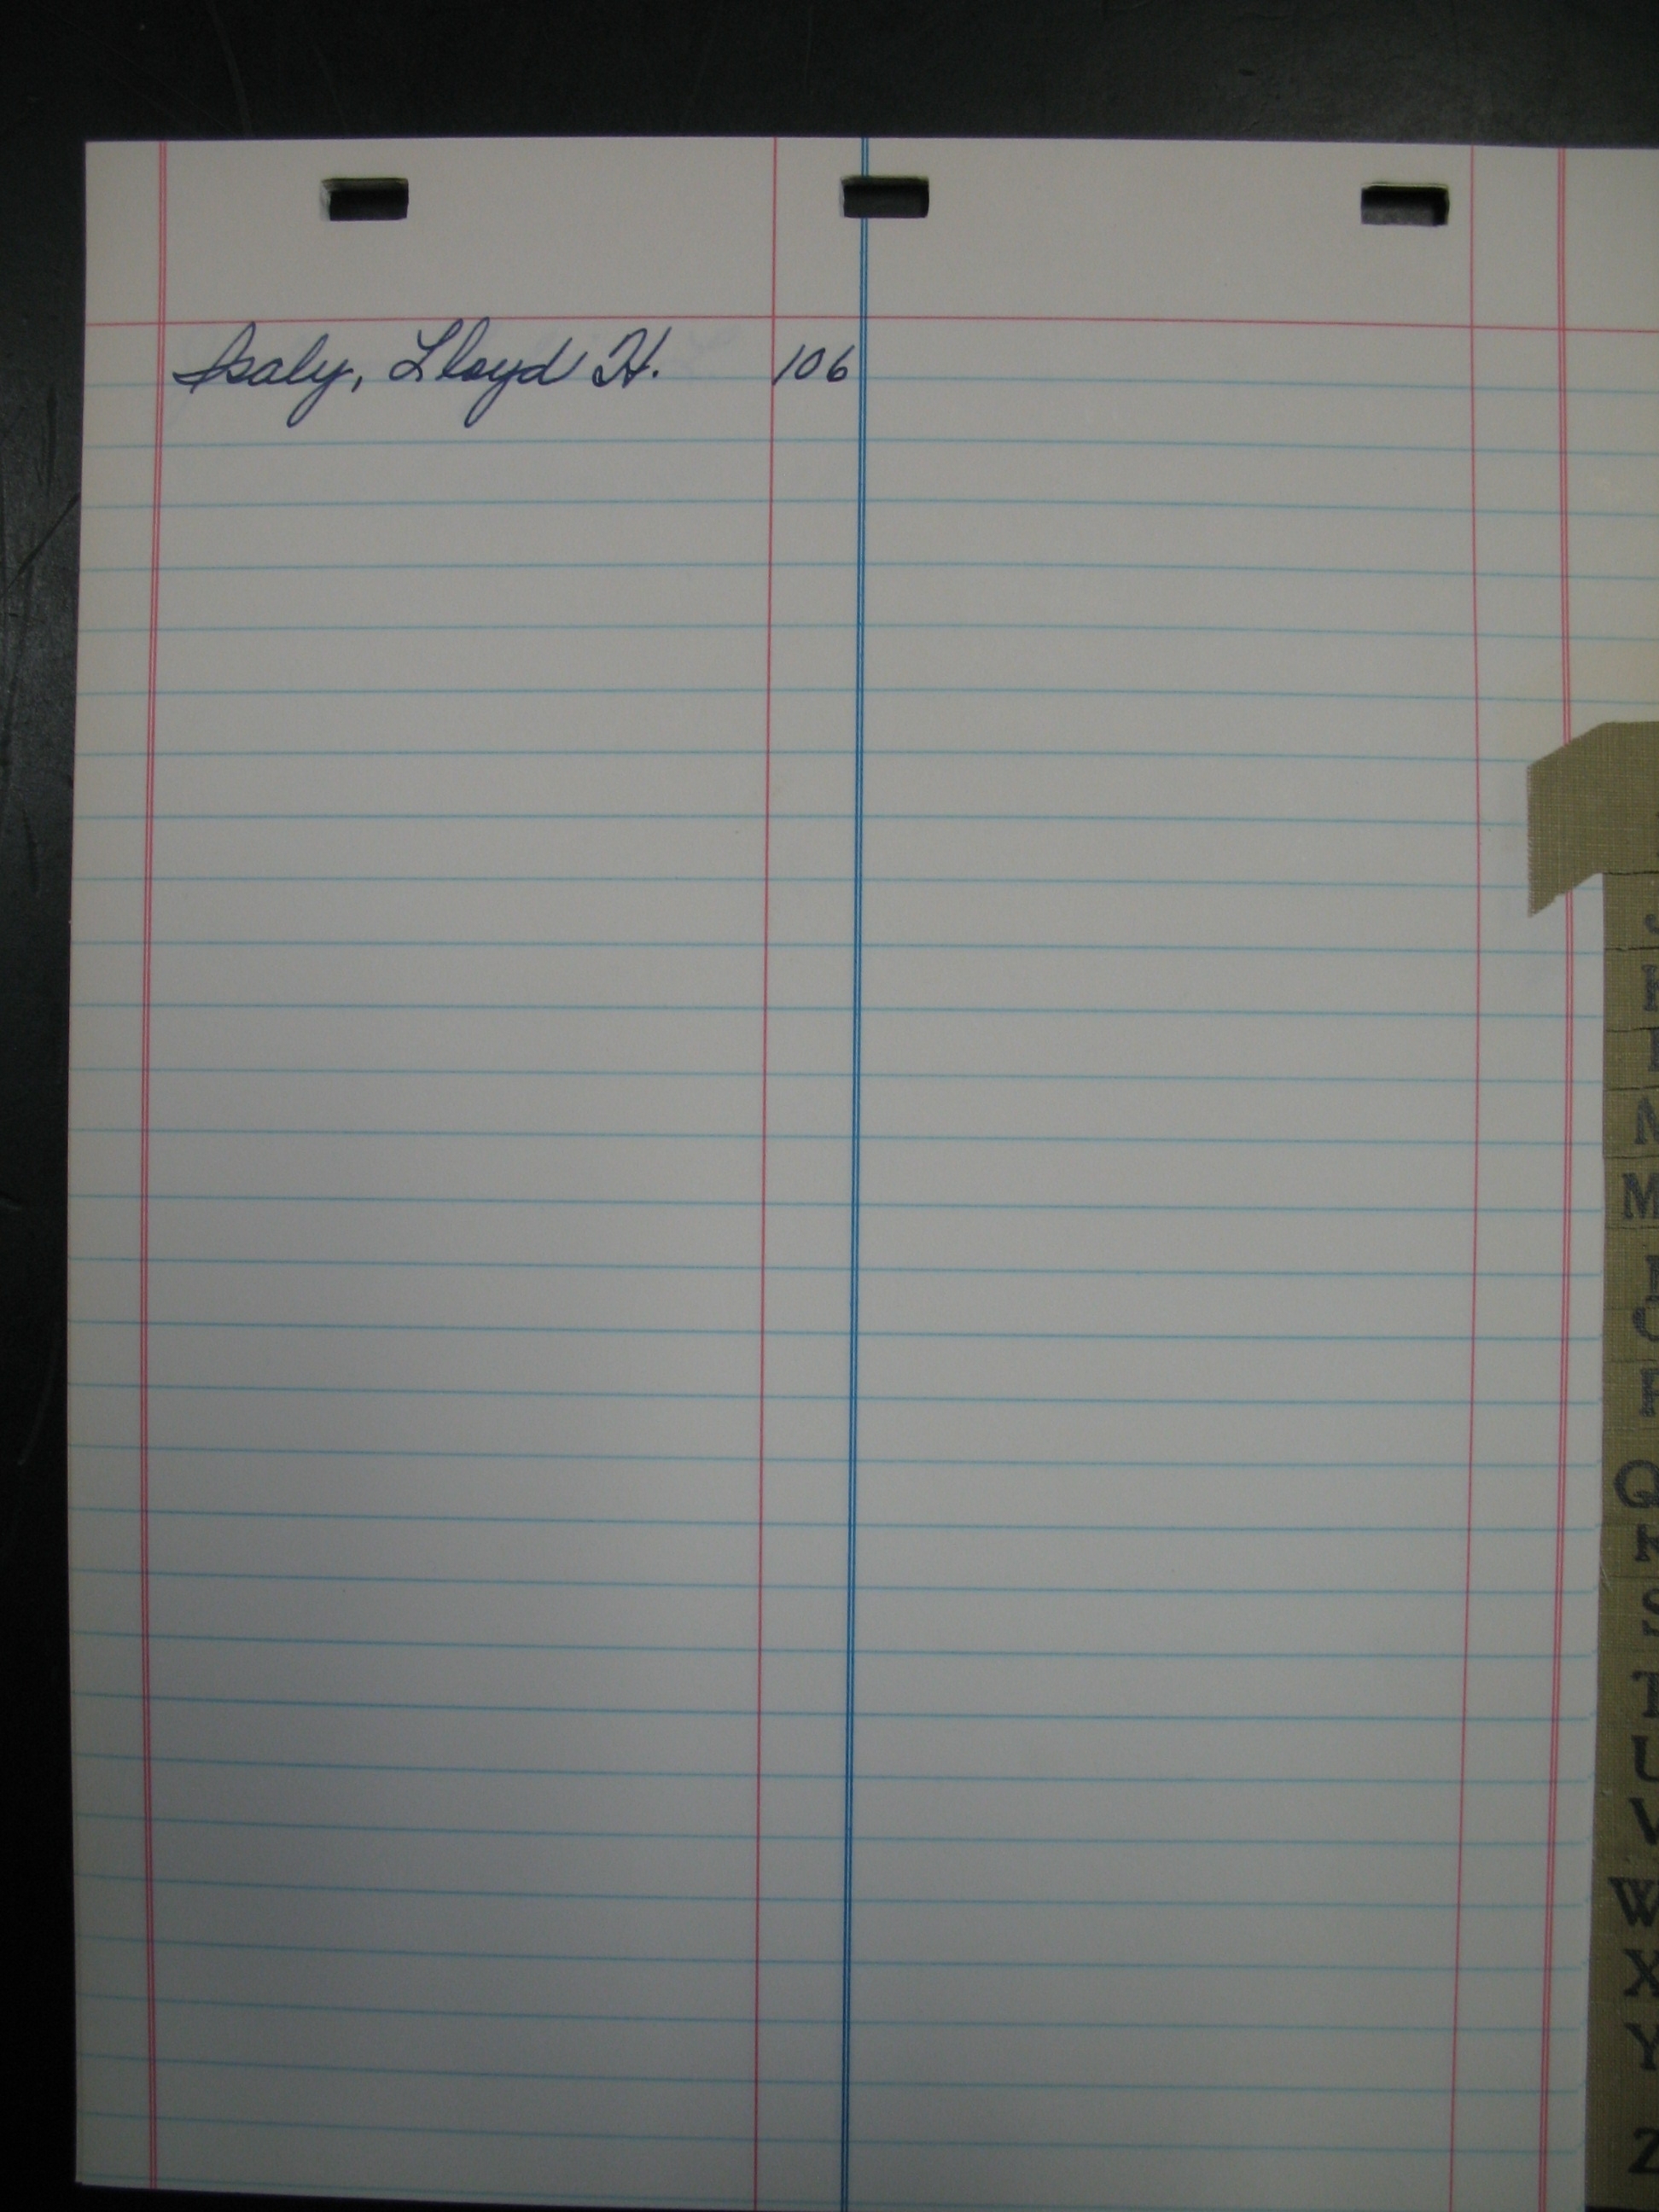 Isaly, Lloyd H. 106
J
M
M
O
Q
R
S
T
U
V
W
X
Y
Z